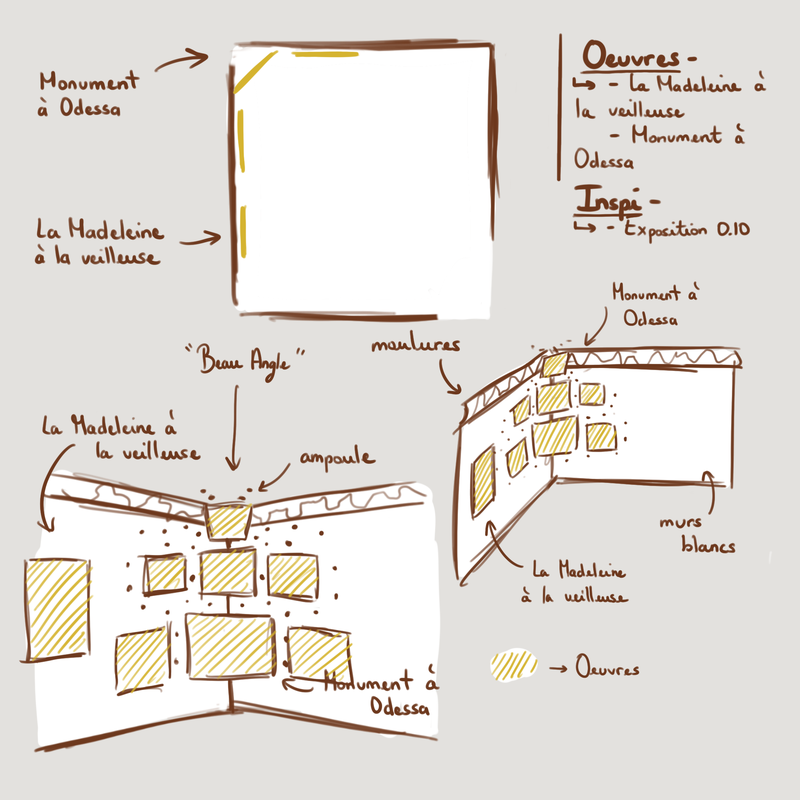 Monument
à Odessa
La Madeleine
à la veilleuse
Oeuvres -
↳ - La Madeleine à
la veilleuse
- Monument à
Odessa
Inspi -
↳ - Exposition 0.10
"Beau Angle"
moulures
Monument à
Odessa
La Madeleine à
la veilleuse
ampoule
murs
blancs
La Madeleine
à la veilleuse
Monument à
Odessa
→ Oeuvres